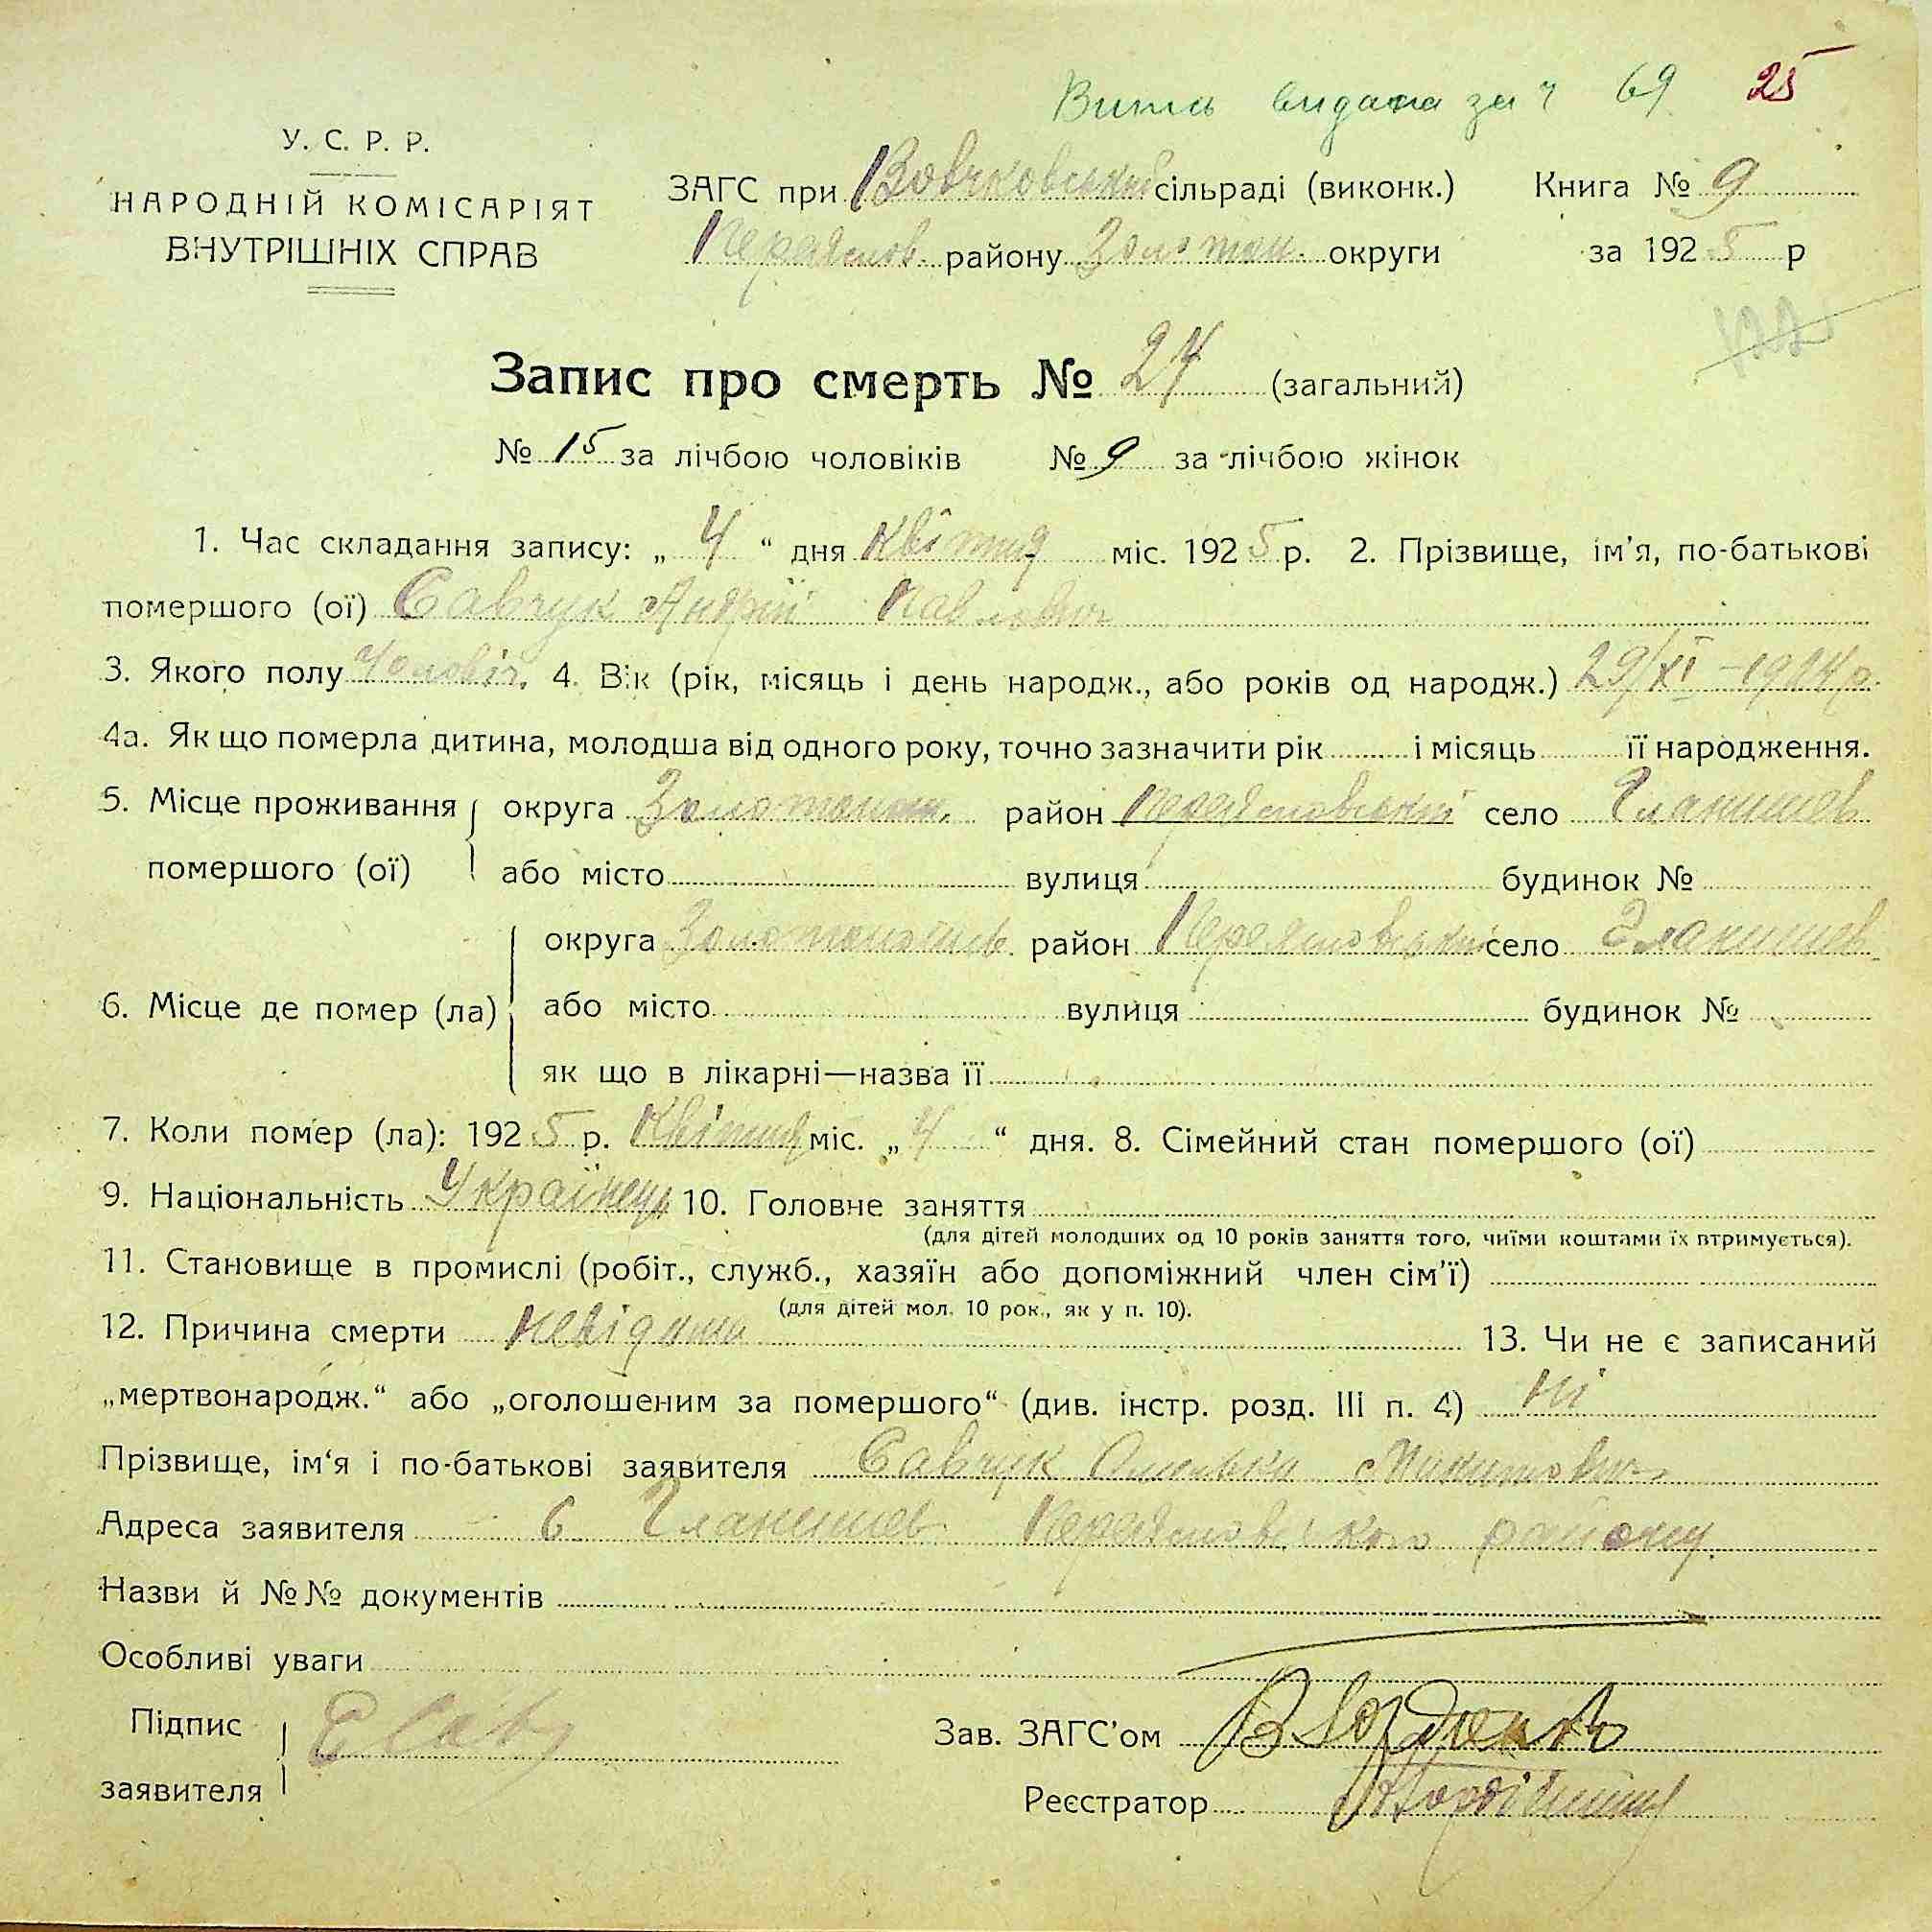 видана за ч 69 25
У. С. Р. Р.
НАРОДНІЙ КОМІСАРІЯТ
ВНУТРІШНІХ СПРАВ
ЗАГС при Вовчковський сільраді (виконк.) Книга № 9
Переяслов. району Золотон. округи за 1925 р
122
Запис про смерть № 24 (загальний)
№ 15 за лічбою чоловіків № 9 за лічбою жінок
1. Час складання запису: „ 4 “ дня Квітня міс. 1925 р. 2. Прізвище, ім’я, по-батькові
помершого (ої) Савчук Андрій Павлович
3. Якого полу Чоловіч. 4. Вік (рік, місяць і день народж., або років од народж.) 29/XI - 1924 р.
4а. Як що померла дитина, молодша від одного року, точно зазначити рік і місяць її народження.
5. Місце проживання округа Золотонош. район Переясловський село Гланишев
помершого (ої) або місто вулиця будинок №
округа район Переясловський село Гланишев
6. Місце де помер (ла) або місто вулиця будинок №
як що в лікарні—назва її
7. Коли помер (ла): 1925 р. Квітня міс. „ 4 “ дня. 8. Сімейний стан помершого (ої)
9. Національність Українець 10. Головне заняття
(для дітей молодших од 10 років заняття того, чиїми коштами їх втримується).
11. Становище в промислі (робіт., служб., хазяїн або допоміжний член сім’ї)
(для дітей мол. 10 рок., як у п. 10).
12. Причина смерти невідома 13. Чи не є записаний
„мертвонародж.“ або „оголошеним за помершого“ (див. інстр. розд. III п. 4) ні
Прізвище, ім‘я і по-батькові заявителя Савчук Микитович
Адреса заявителя с. Гланишев Переясловського району.
Назви й №№ документів
Особливі уваги
Підпис
заявителя
Зав. ЗАГС’ом
Реєстратор